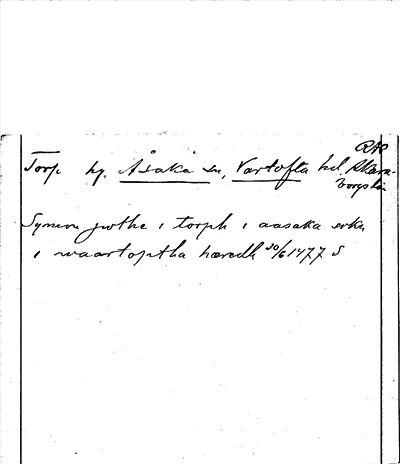 RAP
Torp hg. Åsaka sn, Vartofta hd, Skara-
borgs län
Symon jwthe i torph i aasaka sokn
i waartoptha hæredh 30/6 1477 S